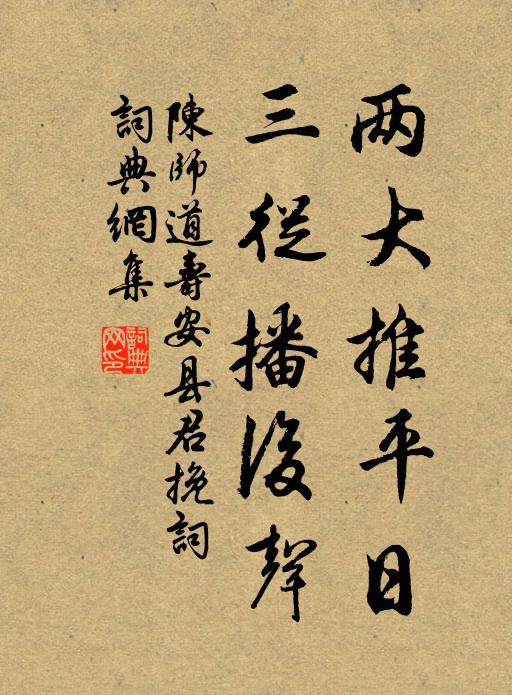 两大推平日
三從播後聲
陳師道壽安县君挽詞
詞典網集
詞典网印